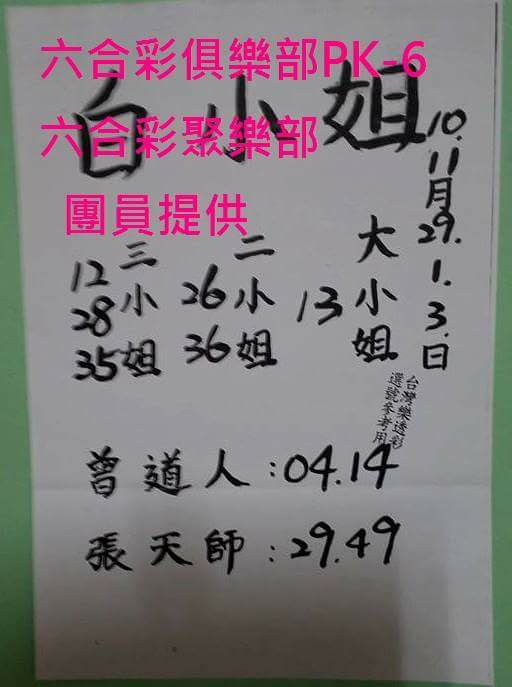 六合彩俱樂部PK-6
白小姐
六合彩聚樂部
團員提供
10.11月29.1.3.日
大小姐
13
二小姐
26
36
三小姐
12
28
35
台灣樂透彩
選號參考用
曾道人:04.14
張天師:29.49